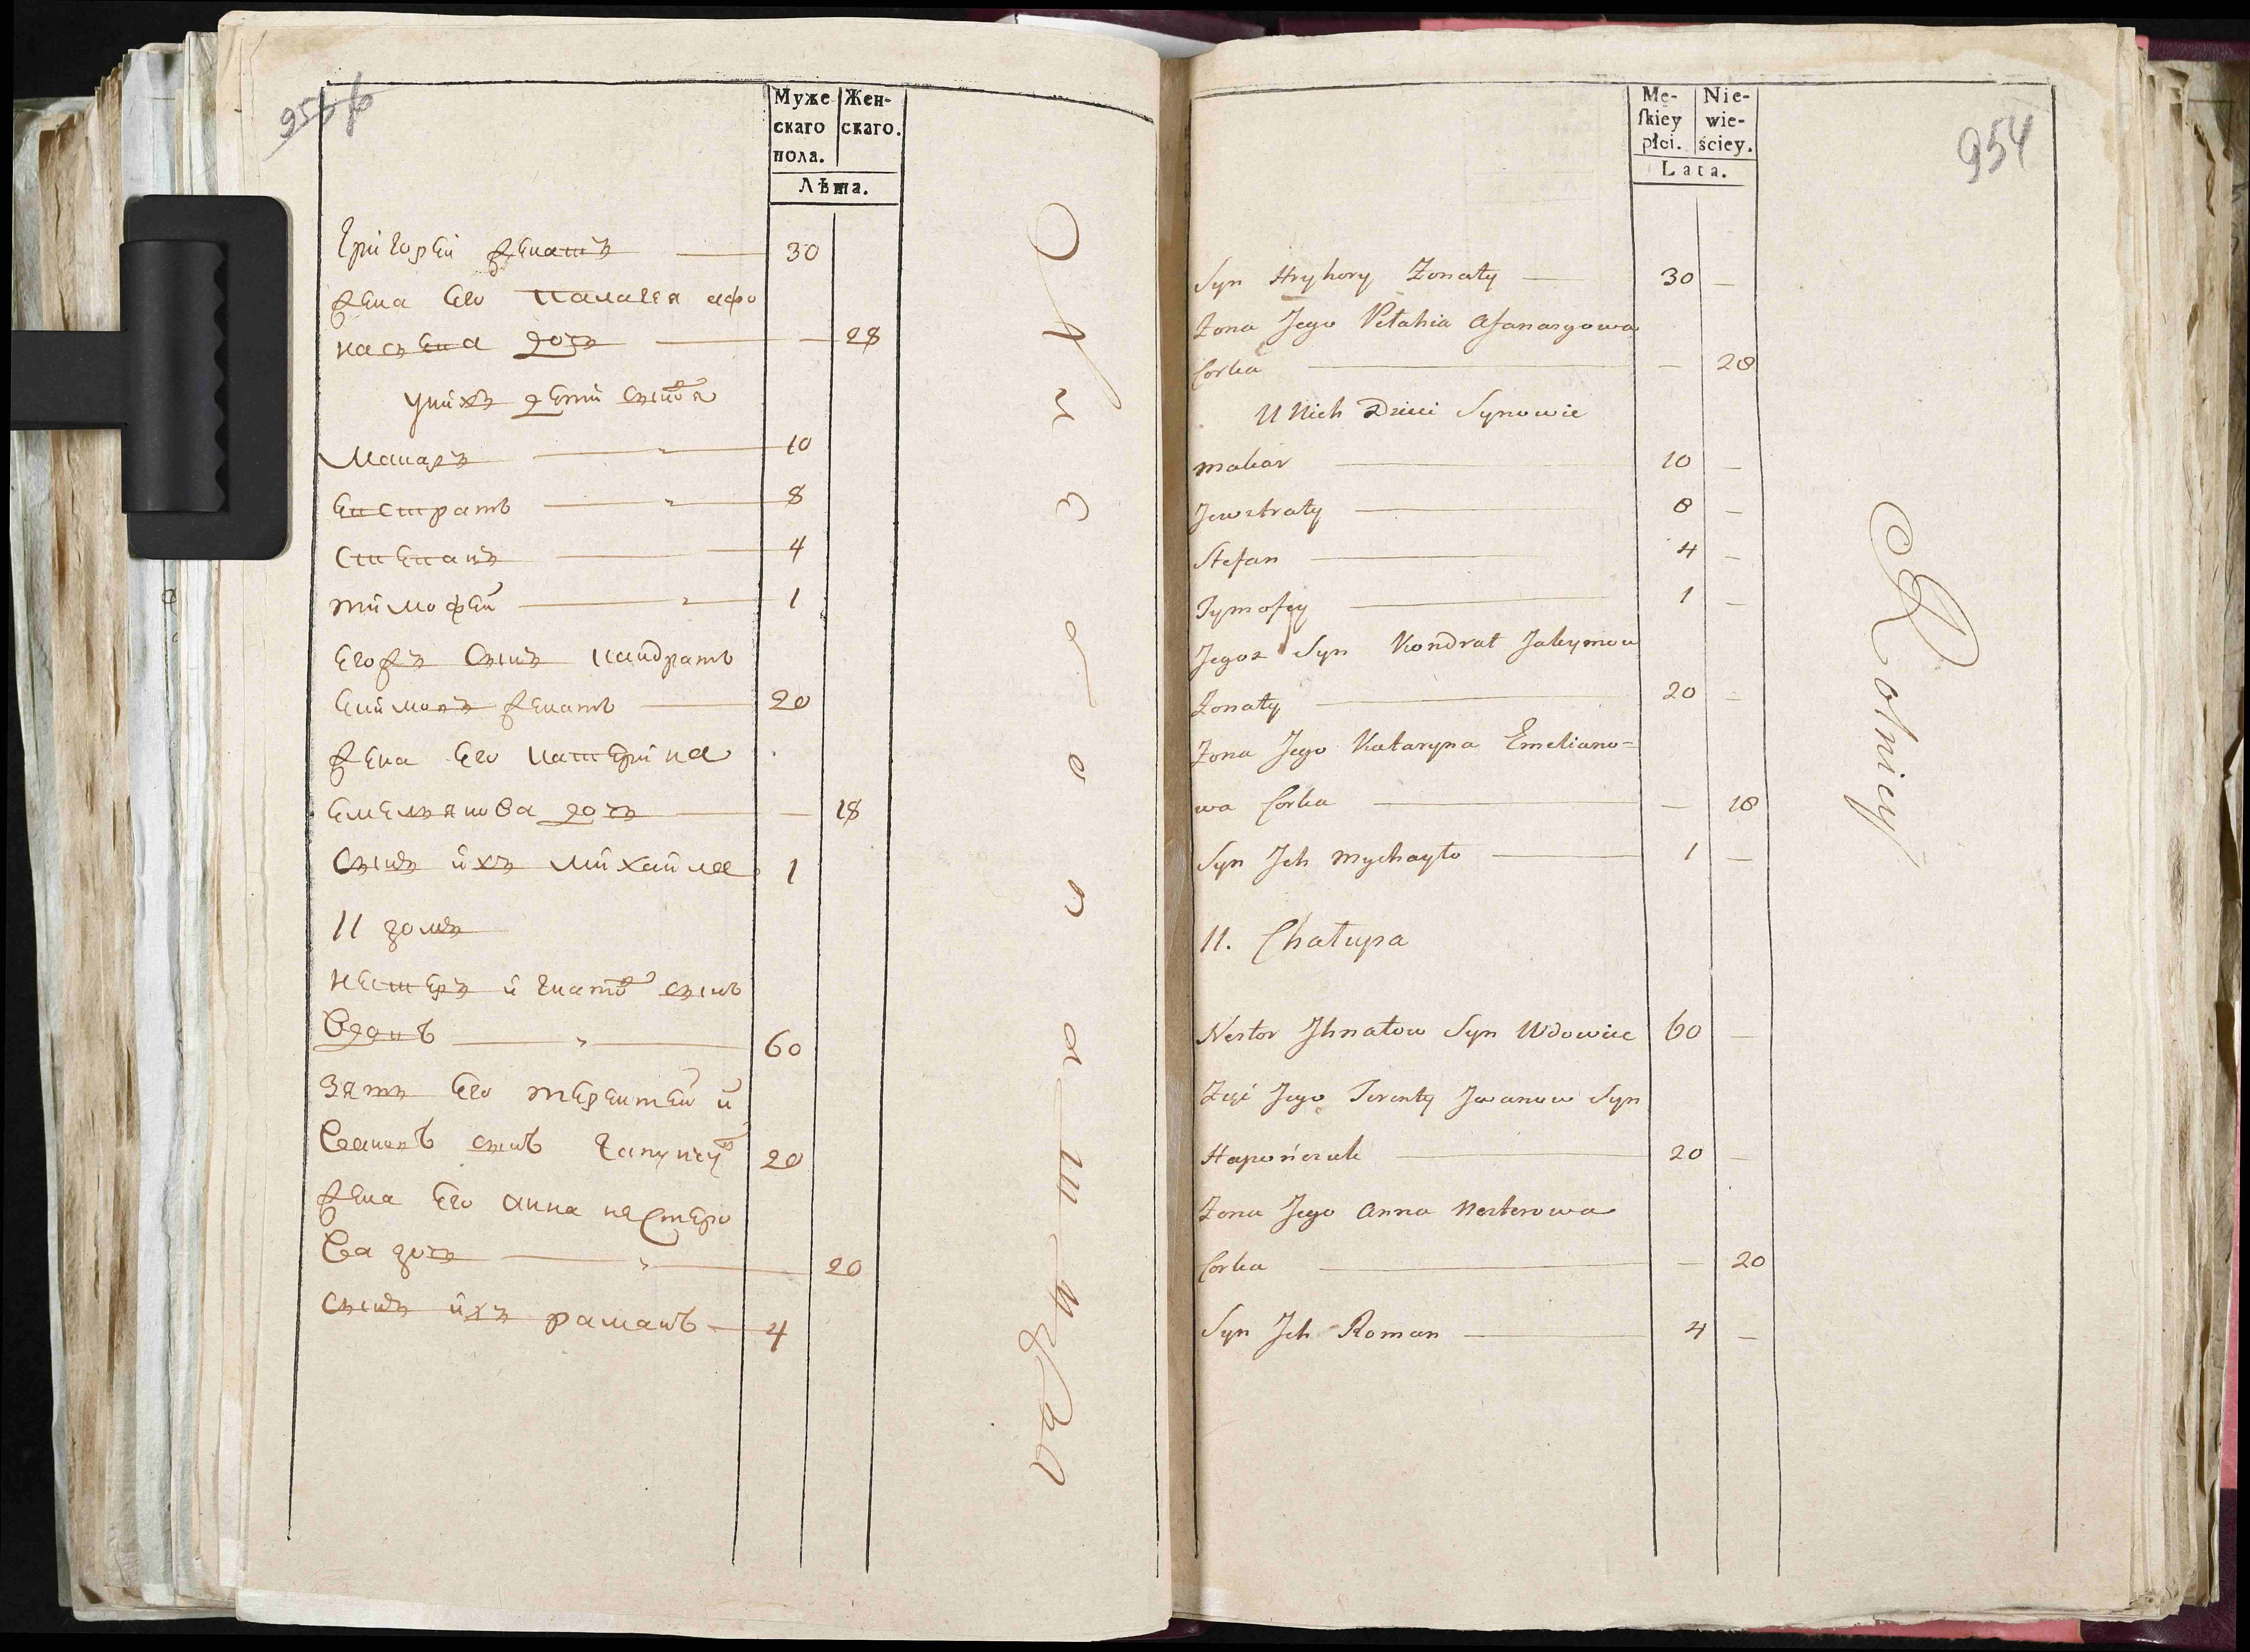 Муже
скаго
пола.
Жен-
скаго.
Лѣта.
Григорей женатъ 30
жена его Палагея афо
насъева дочь — 28
уних детй сынов̾я
Макаръ 10
Евстратъ 8
Степанъ 4
тимофей 1
егожъ сынъ кандратъ
екимовъ женатъ 20
жена его катерина
емельянова дочь — 18
сынъ ихъ михайла 1
11 домъ
нестеръ игнатов сынъ
вдовъ 60
зять его терентей и
вановъ сынъ 20
жена его анна нестеро
ва дочь 20
сынъ ихъ раманъ 4
954
Mę-
ſkiey
płci.
Nie-
wie-
ściey.
Lata.
Syn Hryhory Żonaty — 30 —
Żona Jego Pelahia Afanasyowa
Corka — 28
U Nich Dzieci Synowie
Makar 10 —
Jewstraty 8 —
Stefan 4 —
Tymofiy 1 —
Jegoz Syn Kondrat Jakymow
Żonaty 20 —
Żona Jego Kataryna Emeliano=
wa Corka — 18
Syn Jch Mychayło 1 —
11. Chałupa
Nestor Jhnatow Syn Wdowiec 60 —
Zięć Jego Terenty Jwanow Syn
Hapończuk 20 —
Żona Jego Anna Nesterowa
Corka — 20
Syn Jch Roman 4 —
Rolnicy